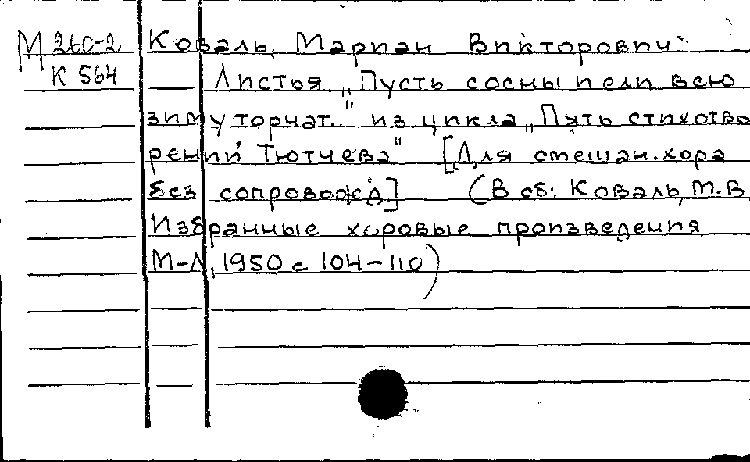 М 260-2 Коваль, Мариан Викторович
К 564 Листья „Пусть сосны и ели всю
зиму торчат." из цикла „Пять стихотво
рений Тютчева" [Для смешан. хора
без сопровожд] (В сб: Коваль, М.В.
Избранные хоровые произведения
М-Л, 1950 с 104-110)